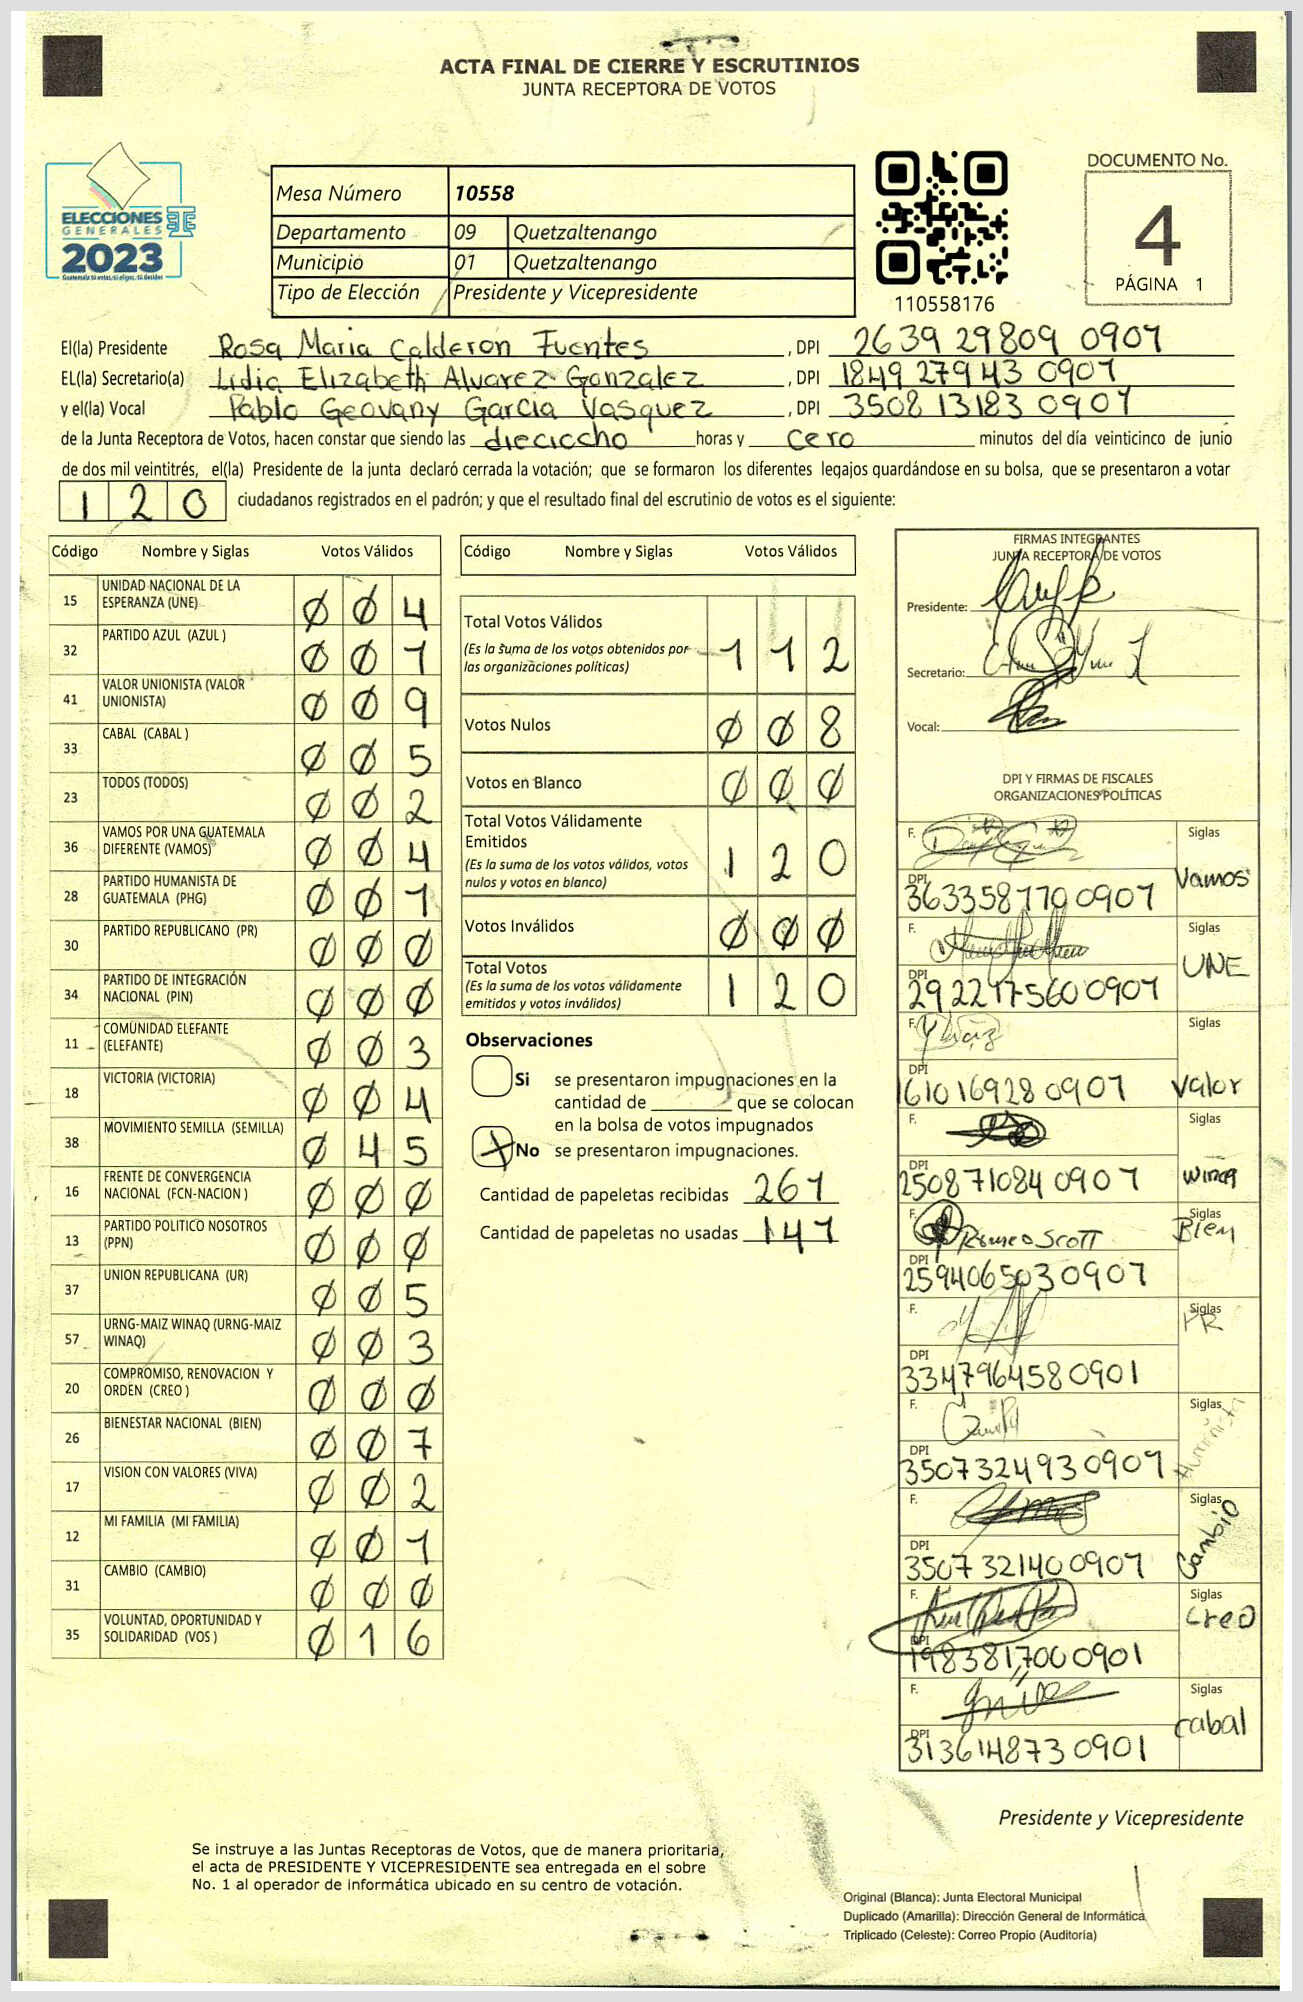 ACTA FINAL DE CIERRE Y ESCRUTINIOS
JUNTA RECEPTORA DE VOTOS
ELECCIONES
GENERALES
2023
Guatemala tú votas, tú eliges, tú decides
Mesa Número 10558
Departamento 09 Quetzaltenango
Municipio 01 Quetzaltenango
Tipo de Elección Presidente y Vicepresidente
110558176
DOCUMENTO No.
4
PÁGINA 1
El(la) Presidente Rosa Maria Calderón Fuentes, DPI 2639 29809 0907
EL(la) Secretario(a) Lidia Elizabeth Alvarez Gonzalez, DPI 1849 27943 0907
y el(la) Vocal Pablo Geovany Garcia Vasquez, DPI 3508 13183 0907
de la Junta Receptora de Votos, hacen constar que siendo las dieciocho horas y cero minutos del día veinticinco de junio
de dos mil veintitrés, el(la) Presidente de la junta declaró cerrada la votación; que se formaron los diferentes legajos guardándose en su bolsa, que se presentaron a votar
120 ciudadanos registrados en el padrón; y que el resultado final del escrutinio de votos es el siguiente:
Código Nombre y Siglas Votos Válidos
15 UNIDAD NACIONAL DE LA
ESPERANZA (UNE) 0 0 4
32 PARTIDO AZUL (AZUL ) 0 0 1
41 VALOR UNIONISTA (VALOR
UNIONISTA) 0 0 9
33 CABAL (CABAL ) 0 0 5
23 TODOS (TODOS) 0 0 2
36 VAMOS POR UNA GUATEMALA
DIFERENTE (VAMOS) 0 0 4
28 PARTIDO HUMANISTA DE
GUATEMALA (PHG) 0 0 1
30 PARTIDO REPUBLICANO (PR) 0 0 0
34 PARTIDO DE INTEGRACIÓN
NACIONAL (PIN) 0 0 0
11 COMUNIDAD ELEFANTE
(ELEFANTE) 0 0 3
18 VICTORIA (VICTORIA) 0 0 4
38 MOVIMIENTO SEMILLA (SEMILLA) 0 4 5
16 FRENTE DE CONVERGENCIA
NACIONAL (FCN-NACION ) 0 0 0
13 PARTIDO POLITICO NOSOTROS
(PPN) 0 0 0
37 UNION REPUBLICANA (UR) 0 0 5
57 URNG-MAIZ WINAQ (URNG-MAIZ
WINAQ) 0 0 3
20 COMPROMISO, RENOVACION Y
ORDEN (CREO ) 0 0 0
26 BIENESTAR NACIONAL (BIEN) 0 0 7
17 VISION CON VALORES (VIVA) 0 0 2
12 MI FAMILIA (MI FAMILIA) 0 0 1
31 CAMBIO (CAMBIO) 0 0 0
35 VOLUNTAD, OPORTUNIDAD Y
SOLIDARIDAD (VOS ) 0 1 6
Código Nombre y Siglas Votos Válidos
Total Votos Válidos
(Es la suma de los votos obtenidos por
las organizaciones políticas) 1 1 2
Votos Nulos 0 0 8
Votos en Blanco 0 0 0
Total Votos Válidamente
Emitidos
(Es la suma de los votos válidos, votos
nulos y votos en blanco) 1 2 0
Votos Inválidos 0 0 0
Total Votos
(Es la suma de los votos válidamente
emitidos y votos inválidos) 1 2 0
Observaciones
Si se presentaron impugnaciones en la
cantidad de ________ que se colocan
en la bolsa de votos impugnados
X No se presentaron impugnaciones.
Cantidad de papeletas recibidas 267
Cantidad de papeletas no usadas 147
FIRMAS INTEGRANTES
JUNTA RECEPTORA DE VOTOS
Presidente:
Secretario:
Vocal:
DPI Y FIRMAS DE FISCALES
ORGANIZACIONES POLÍTICAS
F. Siglas Vamos
DPI 363358770 0907
F. Siglas UNE
DPI 292297560 0907
F. Siglas Valor
DPI 161016928 0907
F. Siglas winaq
DPI 250871084 0907
F. Romeo Scott Siglas Bien
DPI 259406503 0907
F. Siglas PR
DPI 334796458 0901
F. Siglas Humanista
DPI 350732493 0907
F. Siglas Cambio
DPI 350732140 0907
F. Siglas Creo
DPI 198381700 0901
F. Siglas Cabal
DPI 313614873 0901
Presidente y Vicepresidente
Se instruye a las Juntas Receptoras de Votos, que de manera prioritaria,
el acta de PRESIDENTE Y VICEPRESIDENTE sea entregada en el sobre
No. 1 al operador de informática ubicado en su centro de votación.
Original (Blanca): Junta Electoral Municipal
Duplicado (Amarilla): Dirección General de Informática
Triplicado (Celeste): Correo Propio (Auditoría)